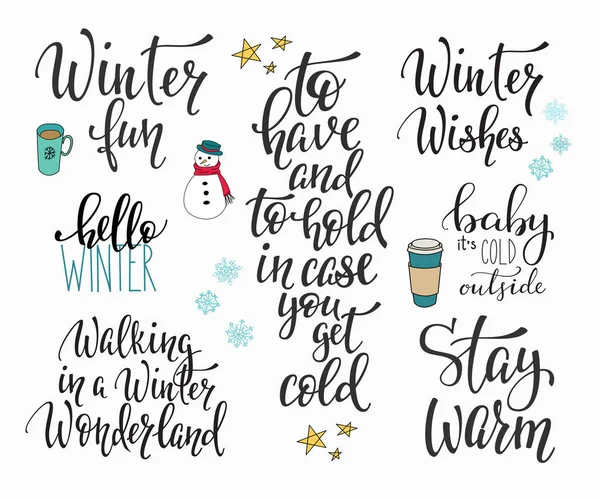 Winter
fun
hello
WINTER
Walking
in a Winter
Wonderland
to
have
and
to hold
in case
you
get
cold
Winter
Wishes
baby
it's COLD
outside
Stay
warm